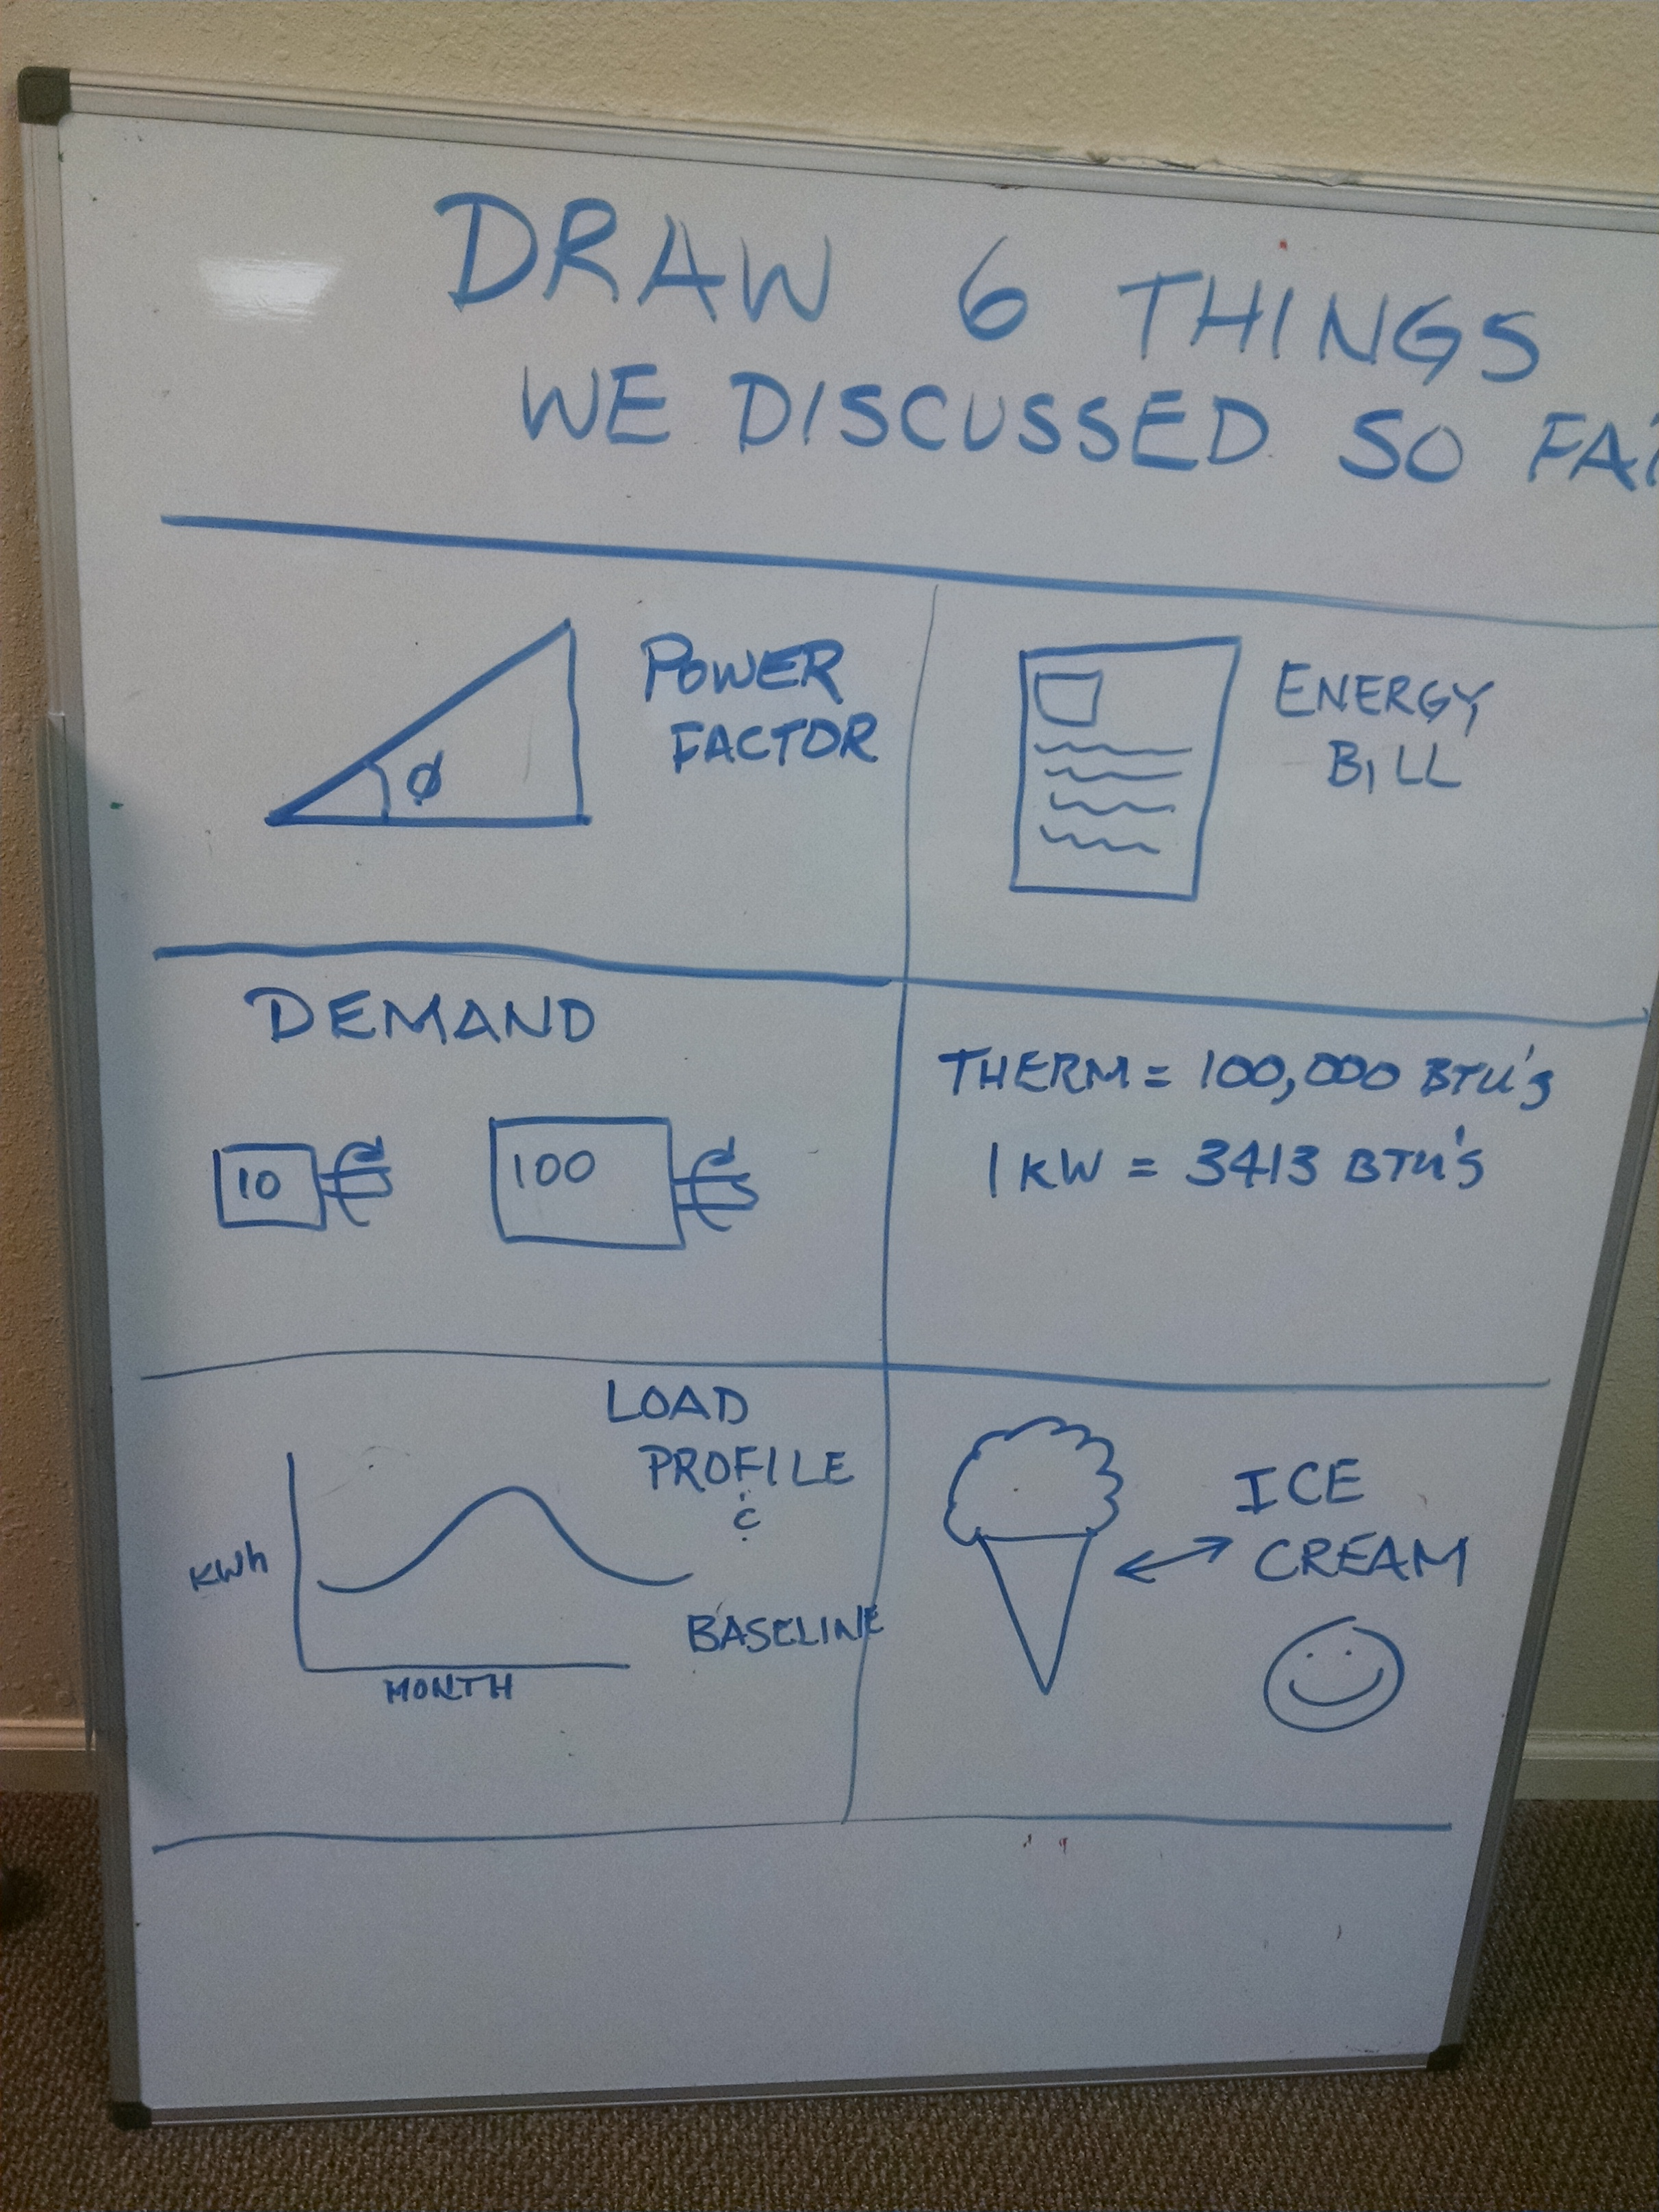 DRAW 6 THINGS
WE DISCUSSED SO FAR
POWER
FACTOR
φ
ENERGY
BILL
DEMAND
10
100
THERM = 100,000 BTU's
1 KW = 3413 BTU's
LOAD
PROFILE
&
BASELINE
KWh
MONTH
ICE
CREAM